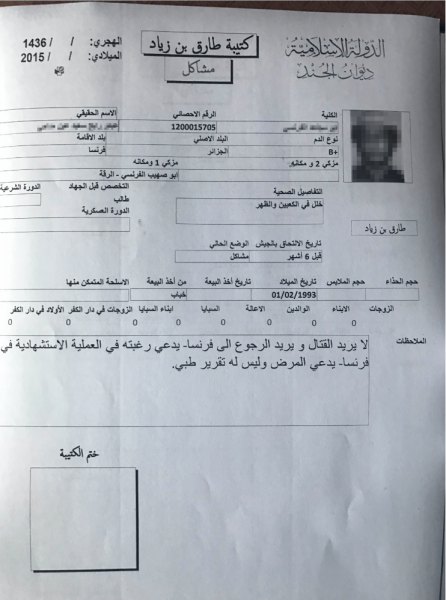 الدولة الاسلامية
ديوان الجند
كتيبة طارق بن زياد
مشاكل
الهجري: / / 1436
الميلادي: / / 2015
الكنية
الرقم الاحصائي
الاسم الحقيقي
1200015705
نوع الدم
البلد الاصلي
بلد الاقامة
B+
الجزائر
فرنسا
مزكي 2 و مكانه
مزكي 1 ومكانه
ابو صهيب الفرنسي - الرقة
التفاصيل الصحية
التخصص قبل الجهاد
الدورة الشرعية
خلل في الكعبين والظهر
طالب
الدورة العسكرية
طارق بن زياد
تاريخ الالتحاق بالجيش
الوضع الحالي
قبل 6 أشهر
مشاكل
حجم الحذاء
حجم الملابس
تاريخ الميلاد
تاريخ أخذ البيعة
من أخذ البيعة
الاسلحة المتمكن منها
01/02/1993
خباب
الزوجات
الابناء
الوالدين
الاعالة
السبايا
ابناء السبايا
الزوجات في دار الكفر
الأولاد في دار الكفر
0 0 0 0 0 0 0 0
الملاحظات
لا يريد القتال و يريد الرجوع الى فرنسا- يدعي رغبته في العملية الاستشهادية في
فرنسا- يدعي المرض وليس له تقرير طبي.
ختم الكتيبة